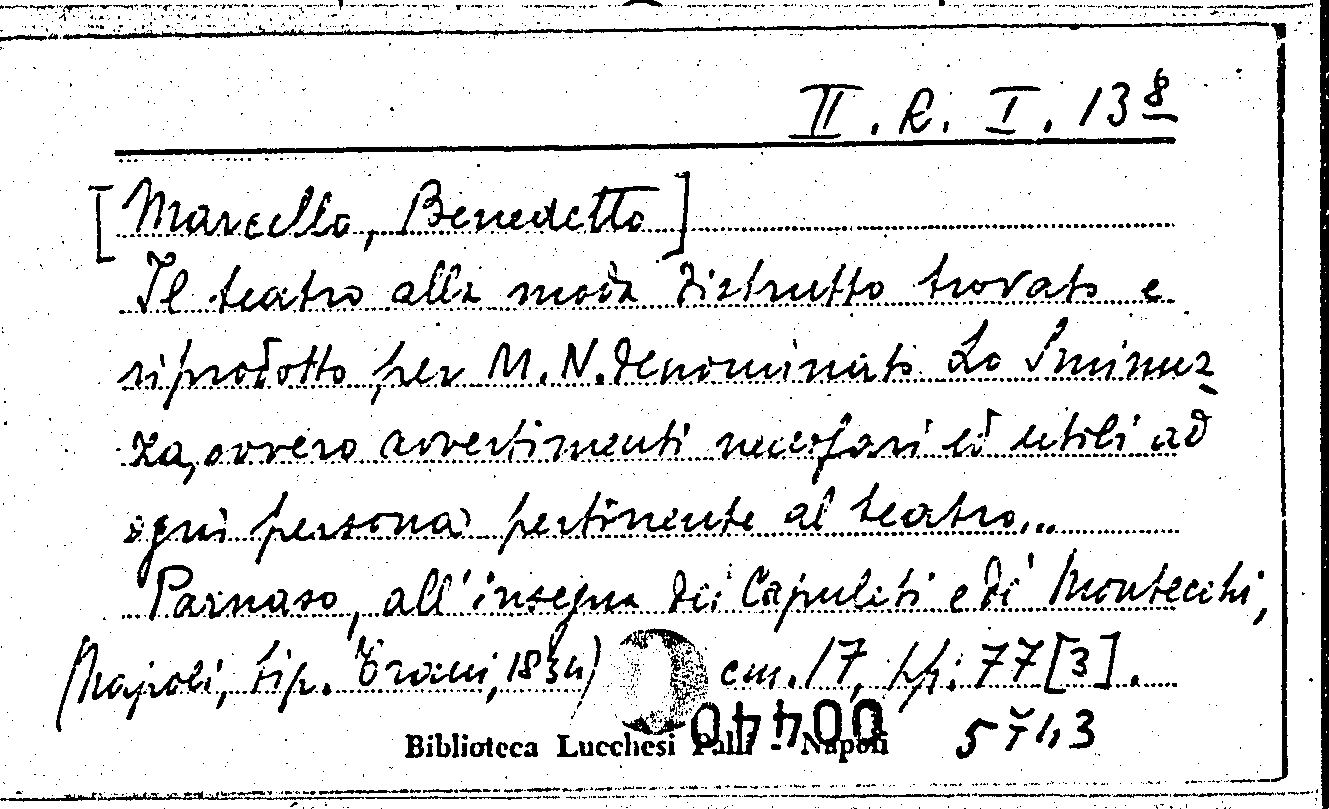 II. R. I. 13 8
[Marcello, Benedetto]
Il teatro alla moda distrutto trovato e
riprodotto per M. N. denominato Lo Sminuz
za, ovvero avvertimenti necessari ed utili ad
ogni persona pertinente al teatro...
Parnaso, all'insegna dei Capuleti e di Montecchi,
(Napoli, tip. Trani, 1834) cm. 17, pp. 77 [3].
Biblioteca Lucchesi Palli - Napoli